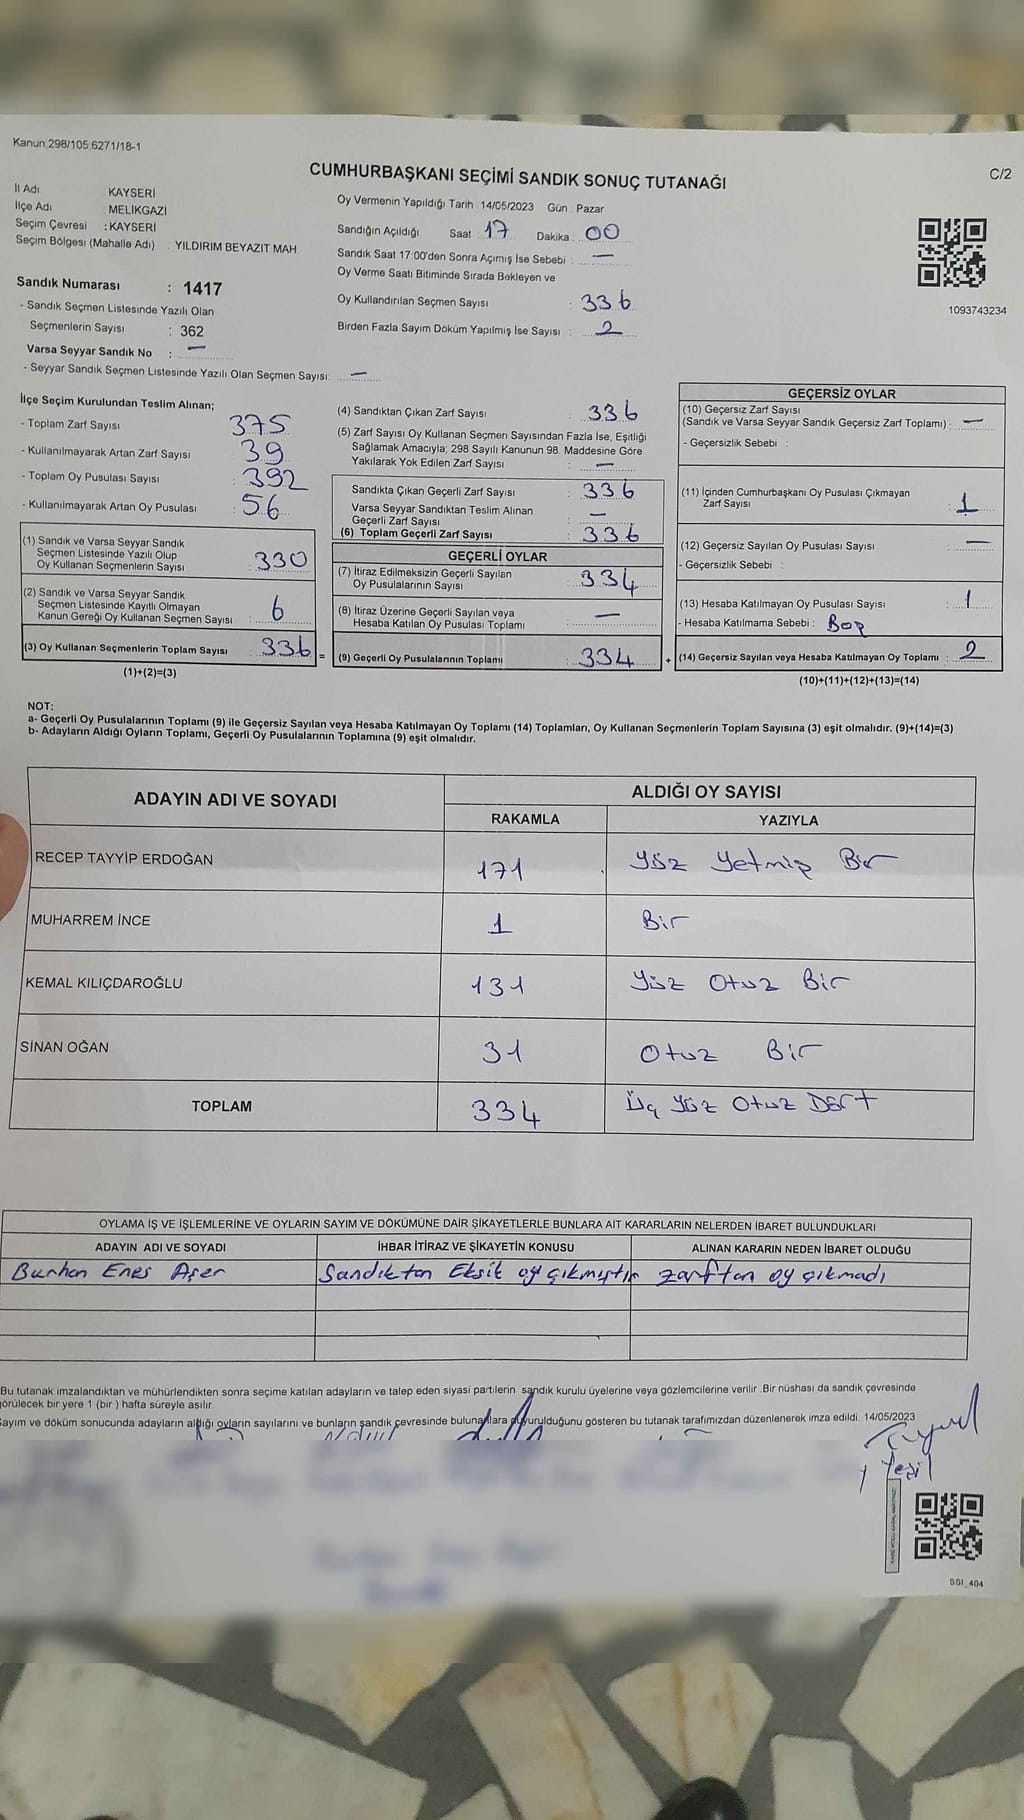 Kanun 298/105 6271/18-1
CUMHURBAŞKANI SEÇİMİ SANDIK SONUÇ TUTANAĞI
C/2
İl Adı KAYSERİ
İlçe Adı MELİKGAZİ
Seçim Çevresi : KAYSERİ
Seçim Bölgesi (Mahalle Adı) : YILDIRIM BEYAZIT MAH.
Oy Vermenin Yapıldığı Tarih 14/05/2023 Gün : Pazar
Sandığın Açıldığı Saat : 17 Dakika : 00
Sandık Saat 17:00'den Sonra Açımış İse Sebebi : —
Oy Verme Saati Bitiminde Sırada Bekleyen ve
Oy Kullandırılan Seçmen Sayısı : 336
Birden Fazla Sayım Döküm Yapılmış İse Sayısı : 2
1093743234
Sandık Numarası : 1417
- Sandık Seçmen Listesinde Yazılı Olan
Seçmenlerin Sayısı : 362
Varsa Seyyar Sandık No : —
- Seyyar Sandık Seçmen Listesinde Yazılı Olan Seçmen Sayısı: —
İlçe Seçim Kurulundan Teslim Alınan;
- Toplam Zarf Sayısı : 375
- Kullanılmayarak Artan Zarf Sayısı : 39
- Toplam Oy Pusulası Sayısı : 392
- Kullanılmayarak Artan Oy Pusulası : 56
(1) Sandık ve Varsa Seyyar Sandık
Seçmen Listesinde Yazılı Olup
Oy Kullanan Seçmenlerin Sayısı : 330
(2) Sandık ve Varsa Seyyar Sandık
Seçmen Listesinde Kayıtlı Olmayan
Kanun Gereği Oy Kullanan Seçmen Sayısı : 6
(3) Oy Kullanan Seçmenlerin Toplam Sayısı : 336 =
(1)+(2)=(3)
(4) Sandıktan Çıkan Zarf Sayısı : 336
(5) Zarf Sayısı Oy Kullanan Seçmen Sayısından Fazla İse, Eşitliği
Sağlamak Amacıyla; 298 Sayılı Kanunun 98. Maddesine Göre
Yakılarak Yok Edilen Zarf Sayısı : —
Sandıkta Çıkan Geçerli Zarf Sayısı : 336
Varsa Seyyar Sandıktan Teslim Alınan
Geçerli Zarf Sayısı : —
(6) Toplam Geçerli Zarf Sayısı : 336
GEÇERLİ OYLAR
(7) İtiraz Edilmeksizin Geçerli Sayılan
Oy Pusulalarının Sayısı : 334
(8) İtiraz Üzerine Geçerli Sayılan veya
Hesaba Katılan Oy Pusulası Toplamı : —
(9) Geçerli Oy Pusulalarının Toplamı : 334 +
GEÇERSİZ OYLAR
(10) Geçersiz Zarf Sayısı
(Sandık ve Varsa Seyyar Sandık Geçersiz Zarf Toplamı) : —
- Geçersizlik Sebebi :
(11) İçinden Cumhurbaşkanı Oy Pusulası Çıkmayan
Zarf Sayısı : 1
(12) Geçersiz Sayılan Oy Pusulası Sayısı : —
- Geçersizlik Sebebi :
(13) Hesaba Katılmayan Oy Pusulası Sayısı : 1
- Hesaba Katılmama Sebebi : Boş
(14) Geçersiz Sayılan veya Hesaba Katılmayan Oy Toplamı : 2
(10)+(11)+(12)+(13)=(14)
NOT:
a- Geçerli Oy Pusulalarının Toplamı (9) ile Geçersiz Sayılan veya Hesaba Katılmayan Oy Toplamı (14) Toplamları, Oy Kullanan Seçmenlerin Toplam Sayısına (3) eşit olmalıdır. (9)+(14)=(3)
b- Adayların Aldığı Oyların Toplamı, Geçerli Oy Pusulalarının Toplamına (9) eşit olmalıdır.
ADAYIN ADI VE SOYADI ALDIĞI OY SAYISI
RAKAMLA YAZIYLA
RECEP TAYYİP ERDOĞAN 171 Yüz Yetmiş Bir
MUHARREM İNCE 1 Bir
KEMAL KILIÇDAROĞLU 131 Yüz Otuz Bir
SİNAN OĞAN 31 Otuz Bir
TOPLAM 334 Üç Yüz Otuz Dört
OYLAMA İŞ VE İŞLEMLERİNE VE OYLARIN SAYIM VE DÖKÜMÜNE DAİR ŞİKAYETLERLE BUNLARA AİT KARARLARIN NELERDEN İBARET BULUNDUKLARI
ADAYIN ADI VE SOYADI İHBAR İTİRAZ VE ŞİKAYETİN KONUSU ALINAN KARARIN NEDEN İBARET OLDUĞU
Burhan Enes Aşer Sandıktan Eksik oy çıkmıştır zarftan oy çıkmadı
Bu tutanak imzalandıktan ve mühürlendikten sonra seçime katılan adayların ve talep eden siyasi partilerin sandık kurulu üyelerine veya gözlemcilerine verilir .Bir nüshası da sandık çevresinde
görülecek bir yere 1 (bir ) hafta süreyle asılır.
Sayım ve döküm sonucunda adayların aldığı oyların sayılarını ve bunların sandık çevresinde bulunanlara duyurulduğunu gösteren bu tutanak tarafımızdan düzenlenerek imza edildi. 14/05/2023
SSI_404